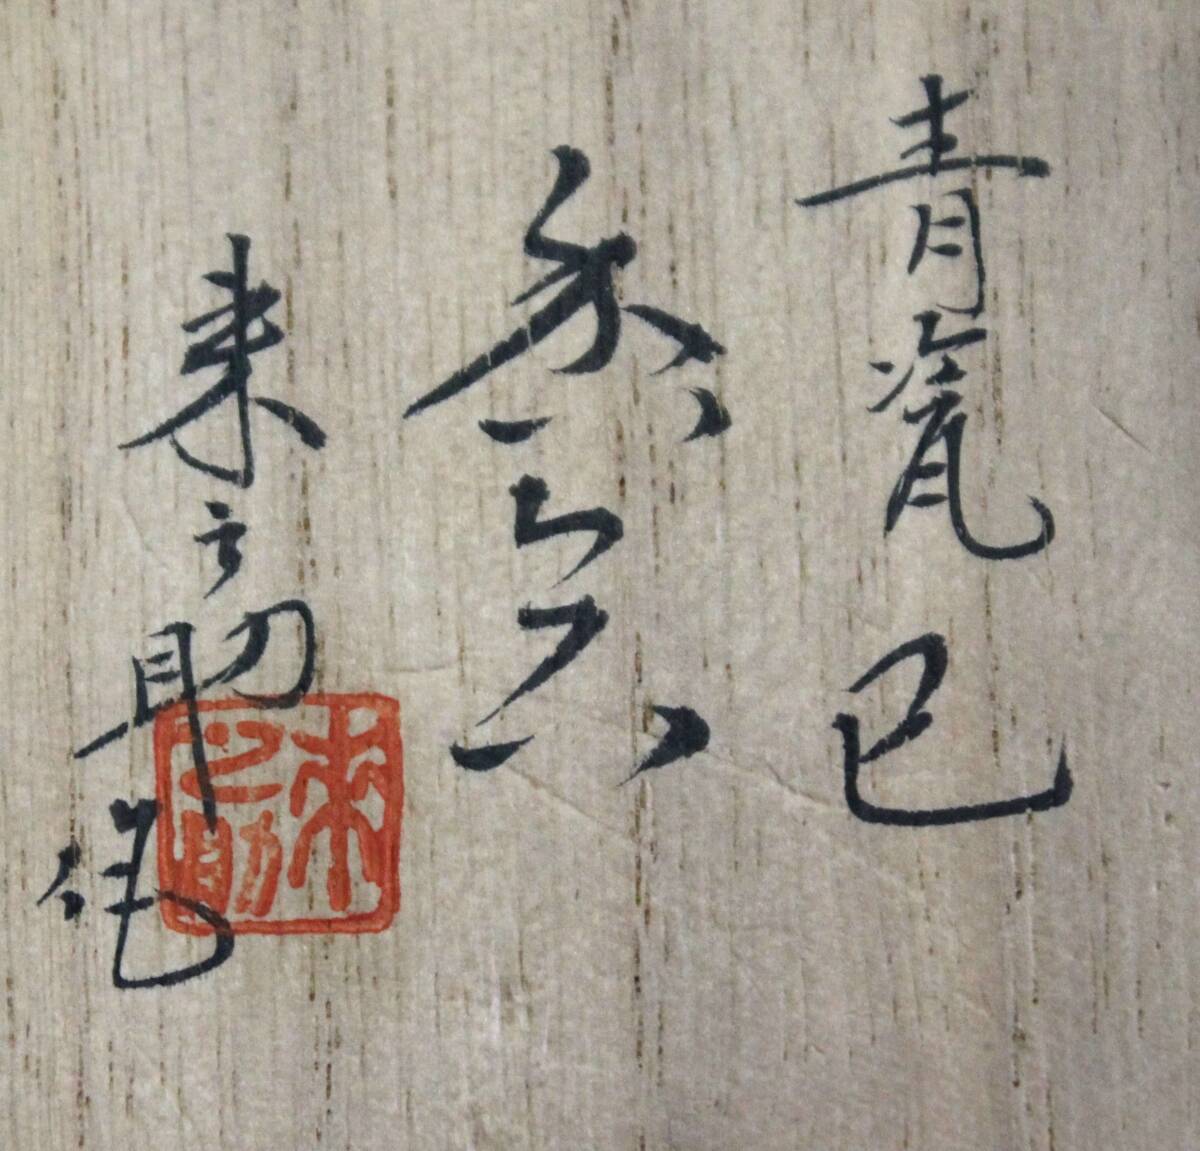 青瓷 巳
香合
来之助作
来之助